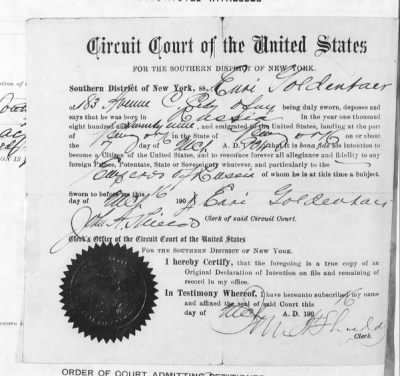 Circuit Court of the United States
FOR THE SOUTHERN DISTRICT OF NEW YORK.
Southern District of New York, ss. Goldenhaer
of 183 Avenue C City being duly sworn, deposes and
says that he was born in Russia in the year one thousand
eight hundred and emigrated to the United States, landing at the port
of New York in the State of New York on or about
the day of A. D. that it is bona fide his intention to
become a Citizen of the United States, and to renounce forever all allegiance and fidelity to any
foreign Prince, Potentate, State or Sovereignty whatever, and particularly to the
of Russia of whom he is at this time a Subject.
Sworn to before me this 16
day of 190 Goldenhaer
John A. Shields Clerk of said Circuit Court.
Clerk's Office of the Circuit Court of the United States
FOR THE SOUTHERN DISTRICT OF NEW YORK.
I hereby Certify, that the foregoing is a true copy of an
Original Declaration of Intention on file and remaining of
record in my office.
In Testimony Whereof, I have hereunto subscribed my name
and affixed the seal of said Court this 16
day of A. D. 190
Shields
Clerk.
ORDER OF COURT ADMITTING PETITIONER